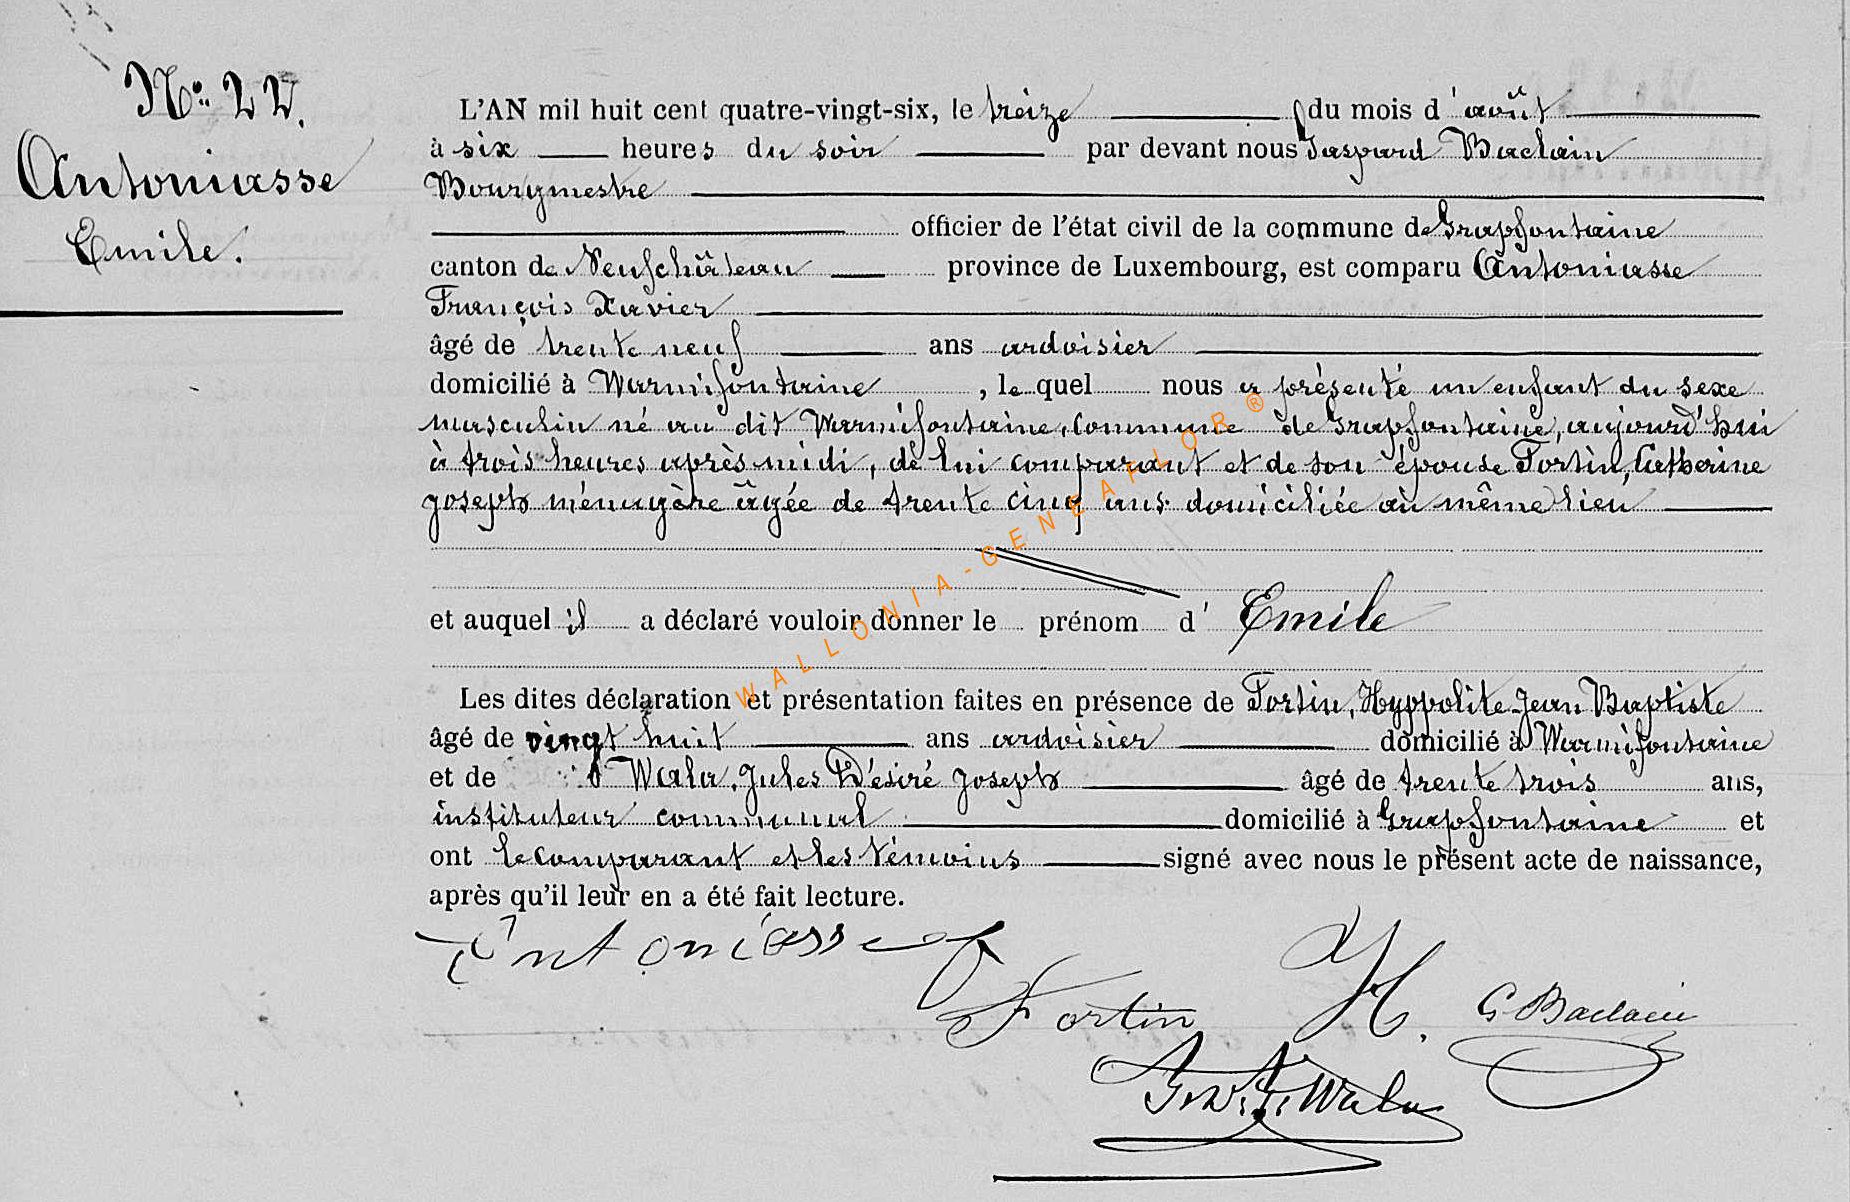 N° 22.
Antoniasse
Emile.
L'AN mil huit cent quatre-vingt-six, le treize du mois d'août
à six heures du soir par devant nous Jaspard Baclain
Bourgmestre
officier de l'état civil de la commune de Grapfontaine
canton de Neufchâteau province de Luxembourg, est comparu Antoniasse
François Xavier
âgé de trente neuf ans ardoisier
domicilié à Warmifontaine, lequel nous a présenté un enfant du sexe
masculin né au dit Warmifontaine, commune de Grapfontaine, aujourd'hui
à trois heures après midi, de lui comparant et de son épouse Fortin, Catherine
Joseph ménagère âgée de trente cinq ans domiciliée au même lieu
et auquel il a déclaré vouloir donner le prénom d' Emile
Les dites déclaration et présentation faites en présence de Fortin, Hyppolite Jean Baptiste
âgé de vingt huit ans ardoisier domicilié à Warmifontaine
et de Wala, Jules Désiré Joseph âgé de trente trois ans,
instituteur communal domicilié à Grapfontaine et
ont le comparant et les témoins signé avec nous le présent acte de naissance,
après qu'il leur en a été fait lecture.
Antoniasse
Fortin H. G Baclain
Wala
WALLONIA-GENEAFLOR®